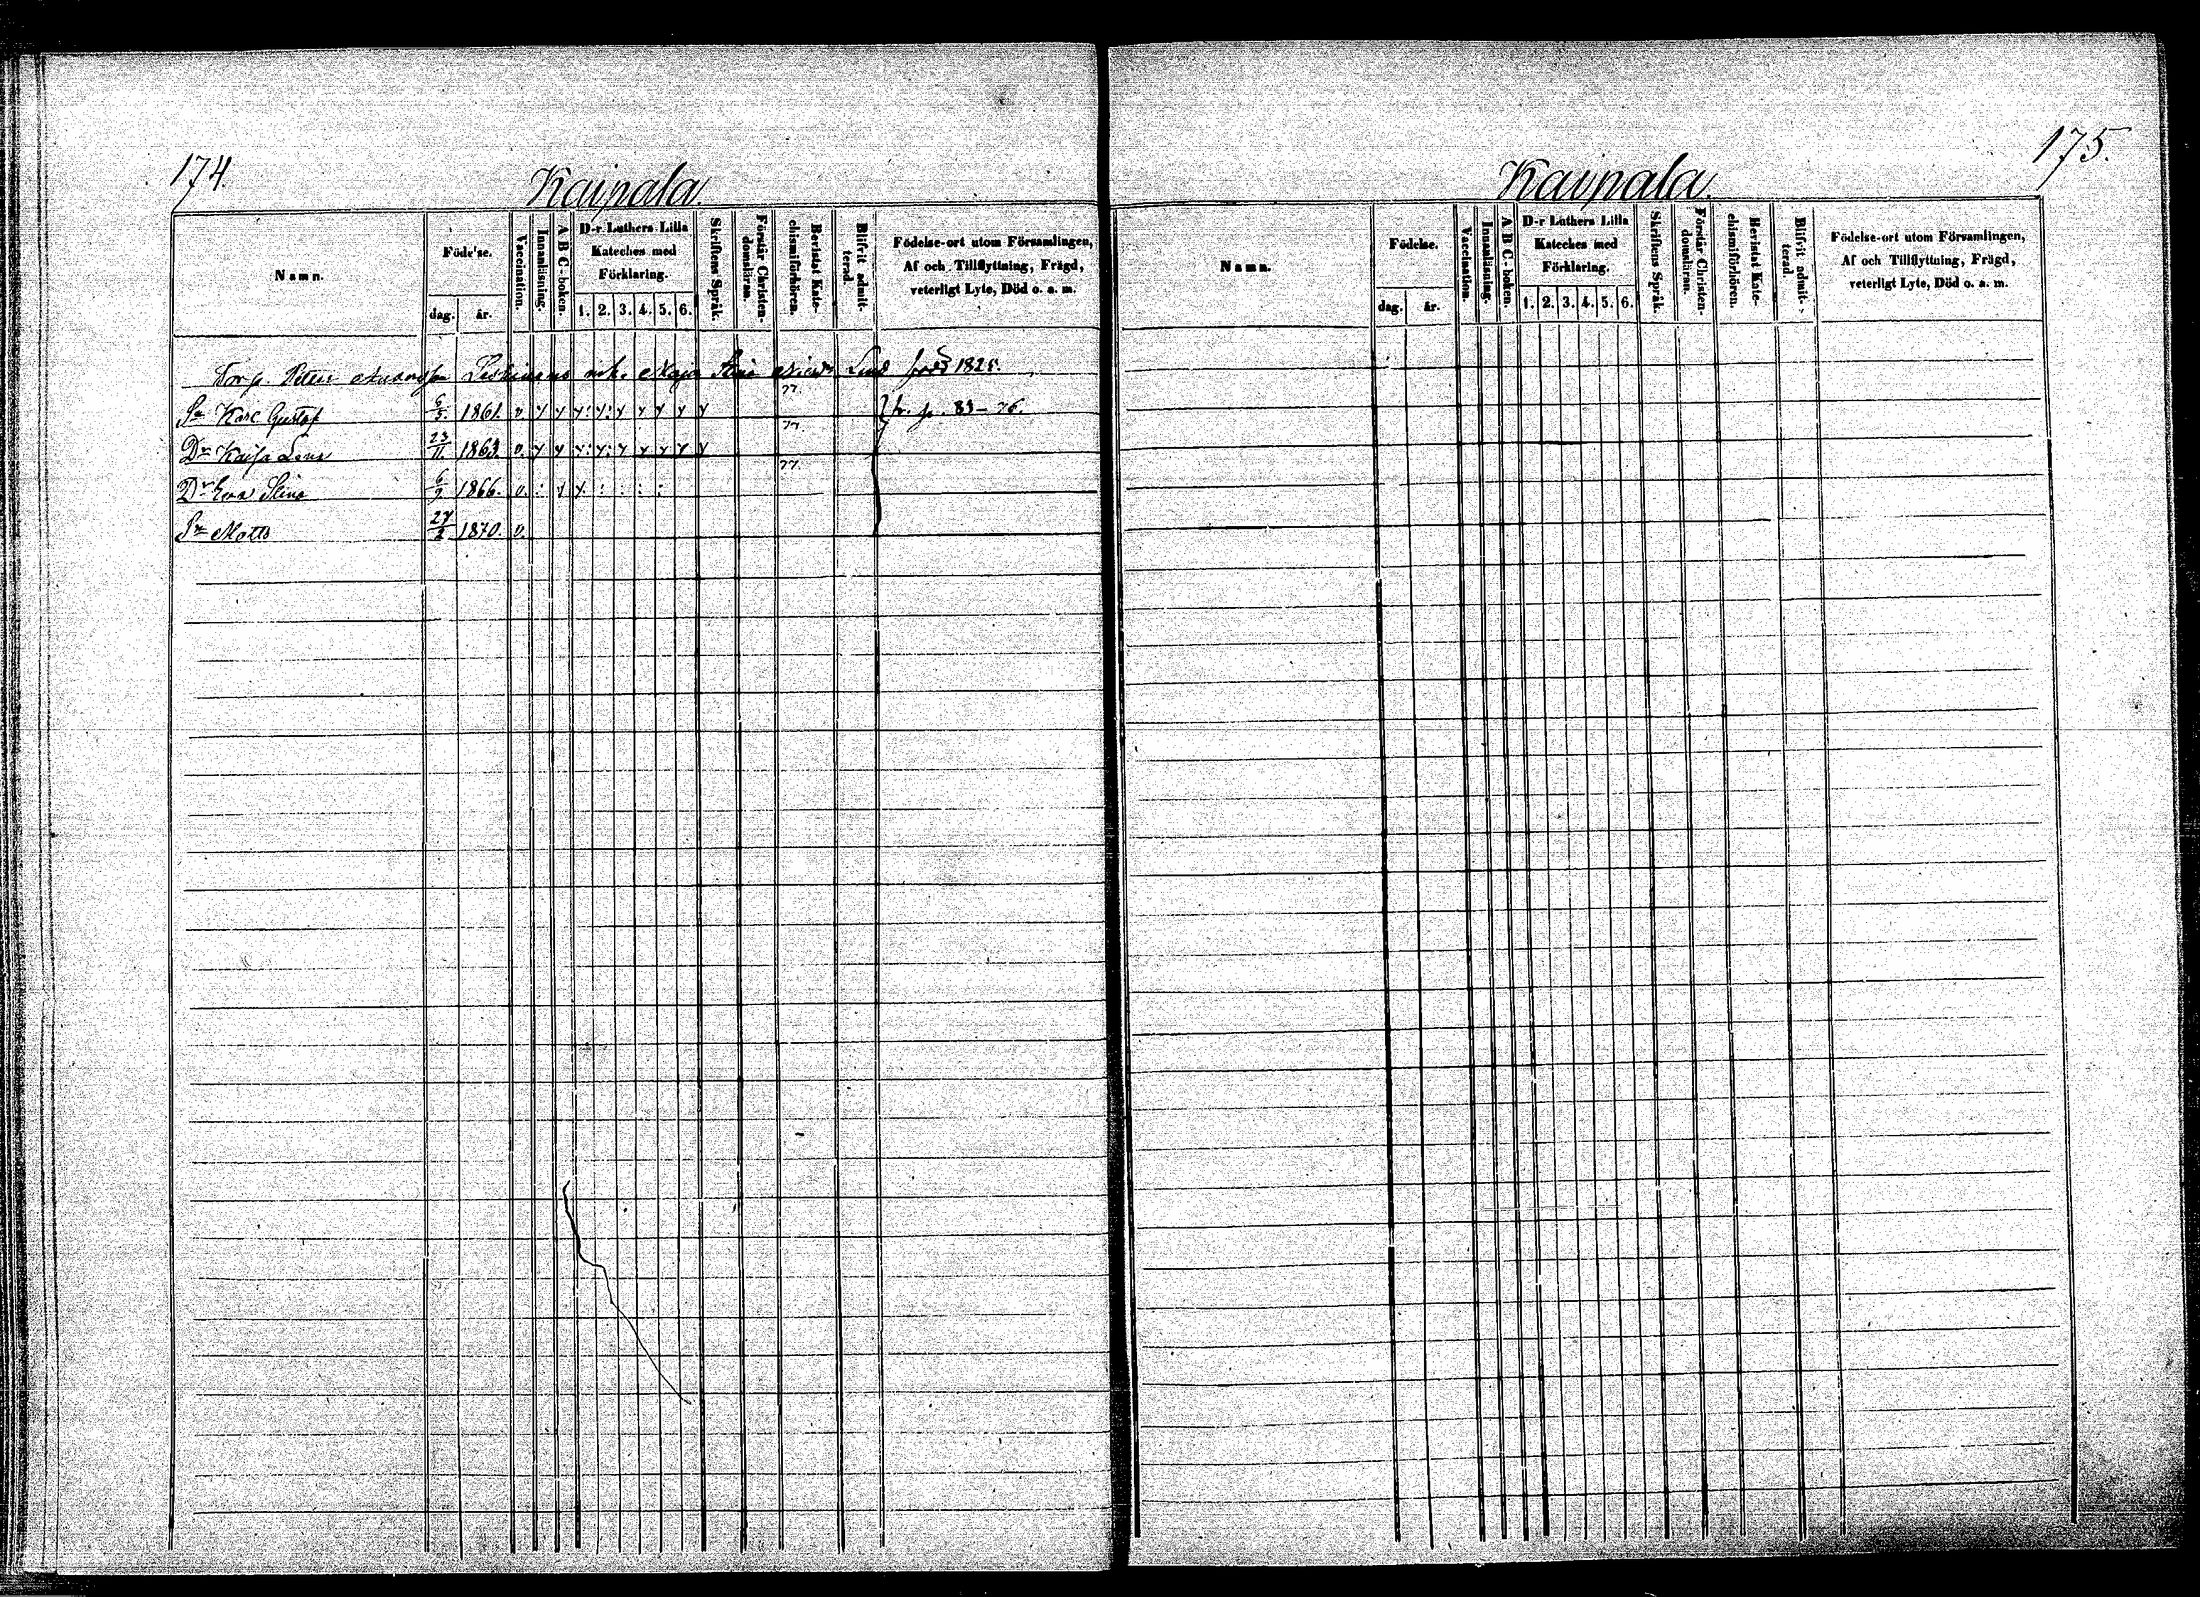 174.
Kaipala.
Namn.
Födelse.
dag.
år.
Vaccination.
Innanläsning.
A B C-boken.
D-r Luthers Lilla
Kateches med
Förklaring.
1. 2. 3. 4. 5. 6.
Skriftens Språk.
Förstår Christen-
domsläran.
Bevistat Kate-
chismiförhören.
Blifvit admit-
terad.
Födelse-ort utom Församlingen,
Af och Tillflyttning, Frägd,
veterligt Lyte, Död o. a. m.
Torp. Petter Andersson enk. Maja Stina Lind född 1825.
77.
Sn Karl Gustaf 6/5 1861. v y y y: y: y y y y y fr. p. 83–76.
77.
Dr Kaisa Lena 23/11 1863. v. y y y: y: y y y y y
77.
Dr Eva Stina 6/9 1866. v. : y y. : : : :
Sn Matts 27/2 1870. v.
175.
Kaipala.
Namn.
Födelse.
dag.
år.
Vaccination.
Innanläsning.
A B C-boken.
D-r Luthers Lilla
Kateches med
Förklaring.
1. 2. 3. 4. 5. 6.
Skriftens Språk.
Förstår Christen-
domsläran.
Bevistat Kate-
chismiförhören.
Blifvit admit-
terad.
Födelse-ort utom Församlingen,
Af och Tillflyttning, Frägd,
veterligt Lyte, Död o. a. m.